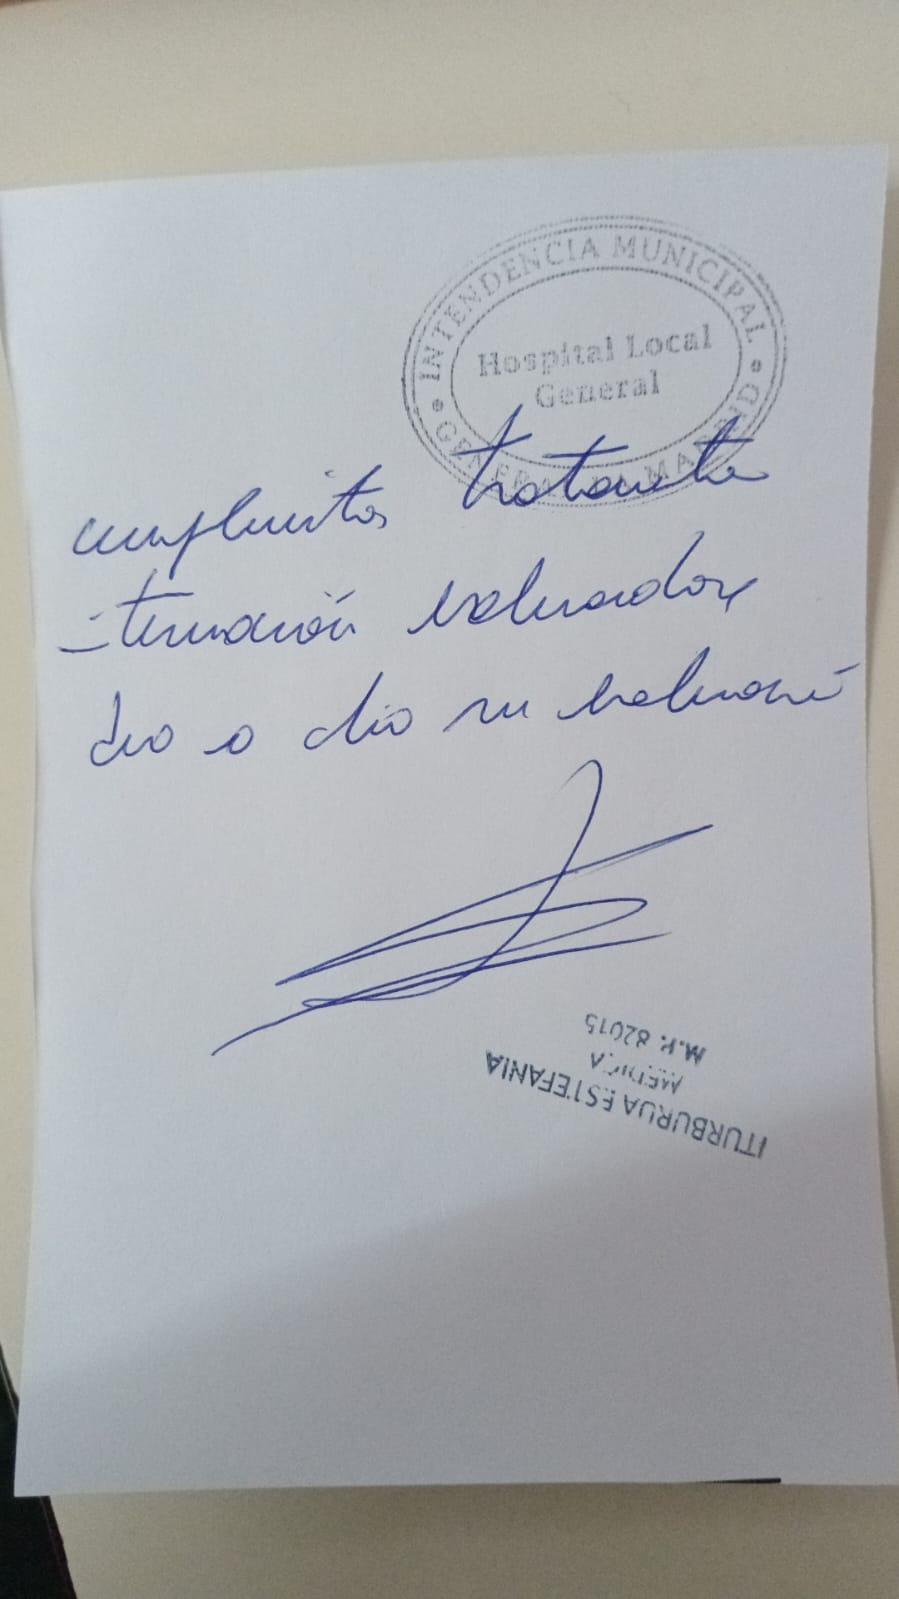 INTENDENCIA MUNICIPAL
Hospital Local
General
GENERAL MADRID
tratamiento
internación evaluandose
dia a dia su evolución
ITURBURUA ESTEFANIA
MEDICA
M.P. 82015